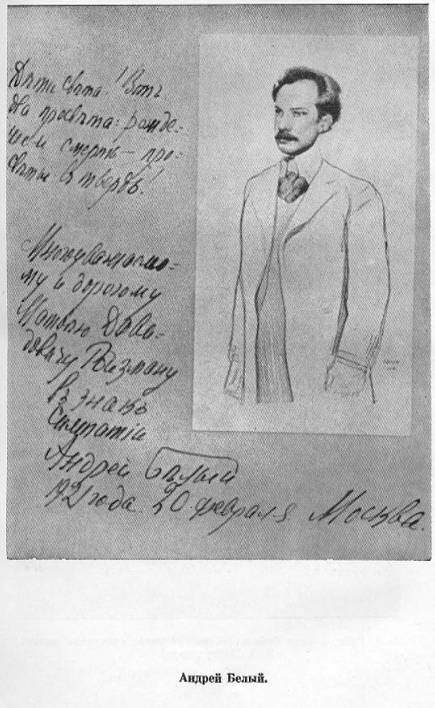 Дѣти свѣта! Вотъ
два просвѣта: рожде-
ніе и смерть — про-
свѣты въ твердь!
Многоуважаемо-
му и дорогому
Матвѣю Дави-
довичу Ройзману
въ знакъ
симпатіи
Андрей Бѣлый
1921 года. 20 февраля Москва.
Андрей Белый.